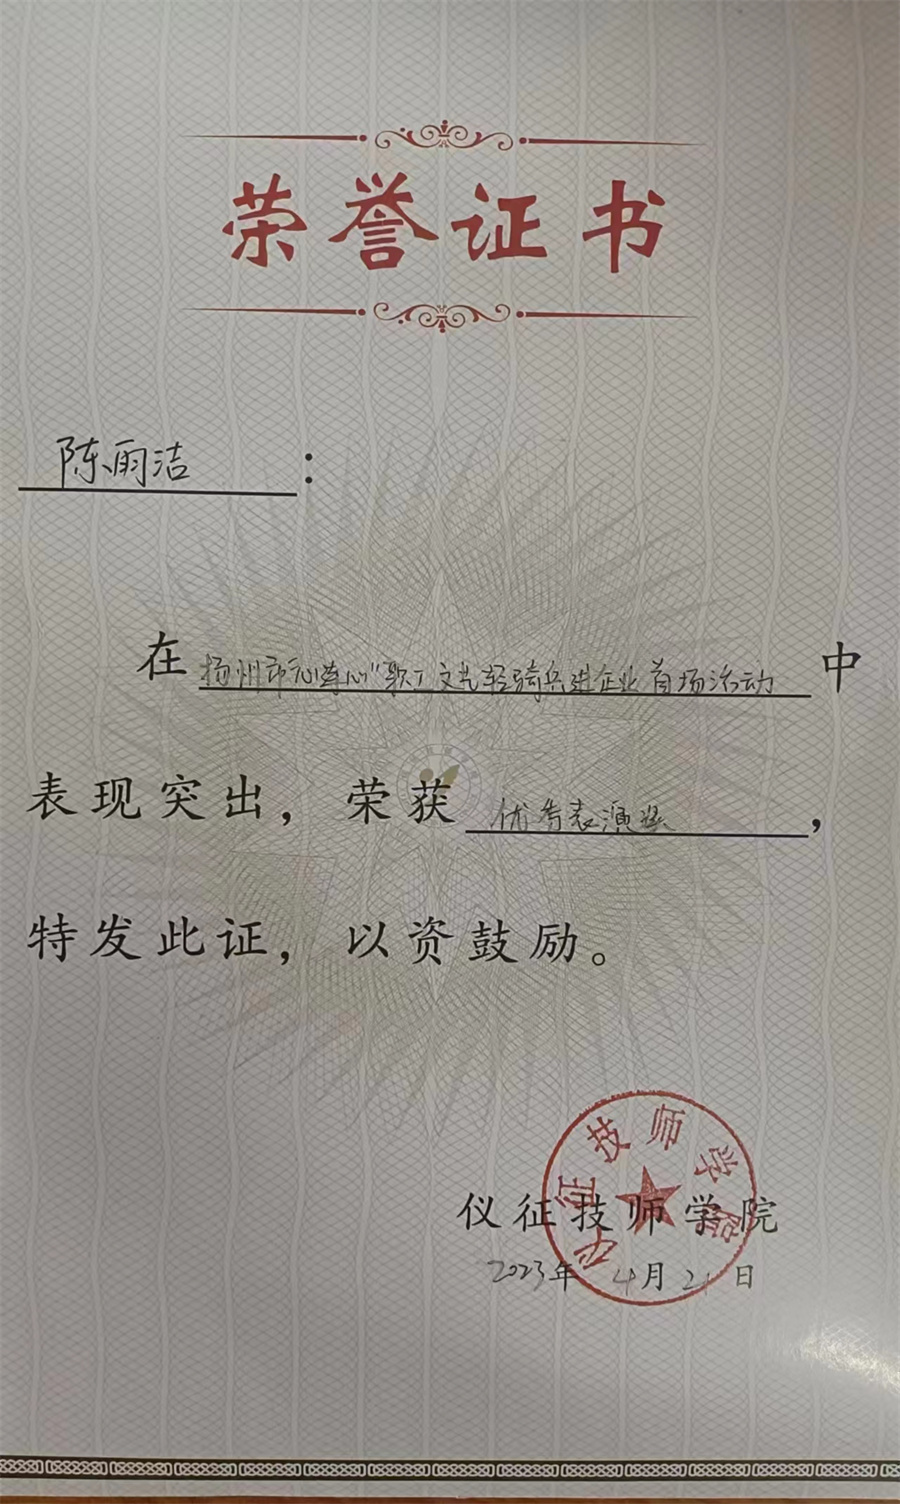 荣誉证书
陈雨洁：
在扬州市"心连心"职工文艺轻骑兵进企业首场活动中
表现突出，荣获优秀表演奖，
特发此证，以资鼓励。
仪征技师学院
仪征技师学院
2023年4月21日